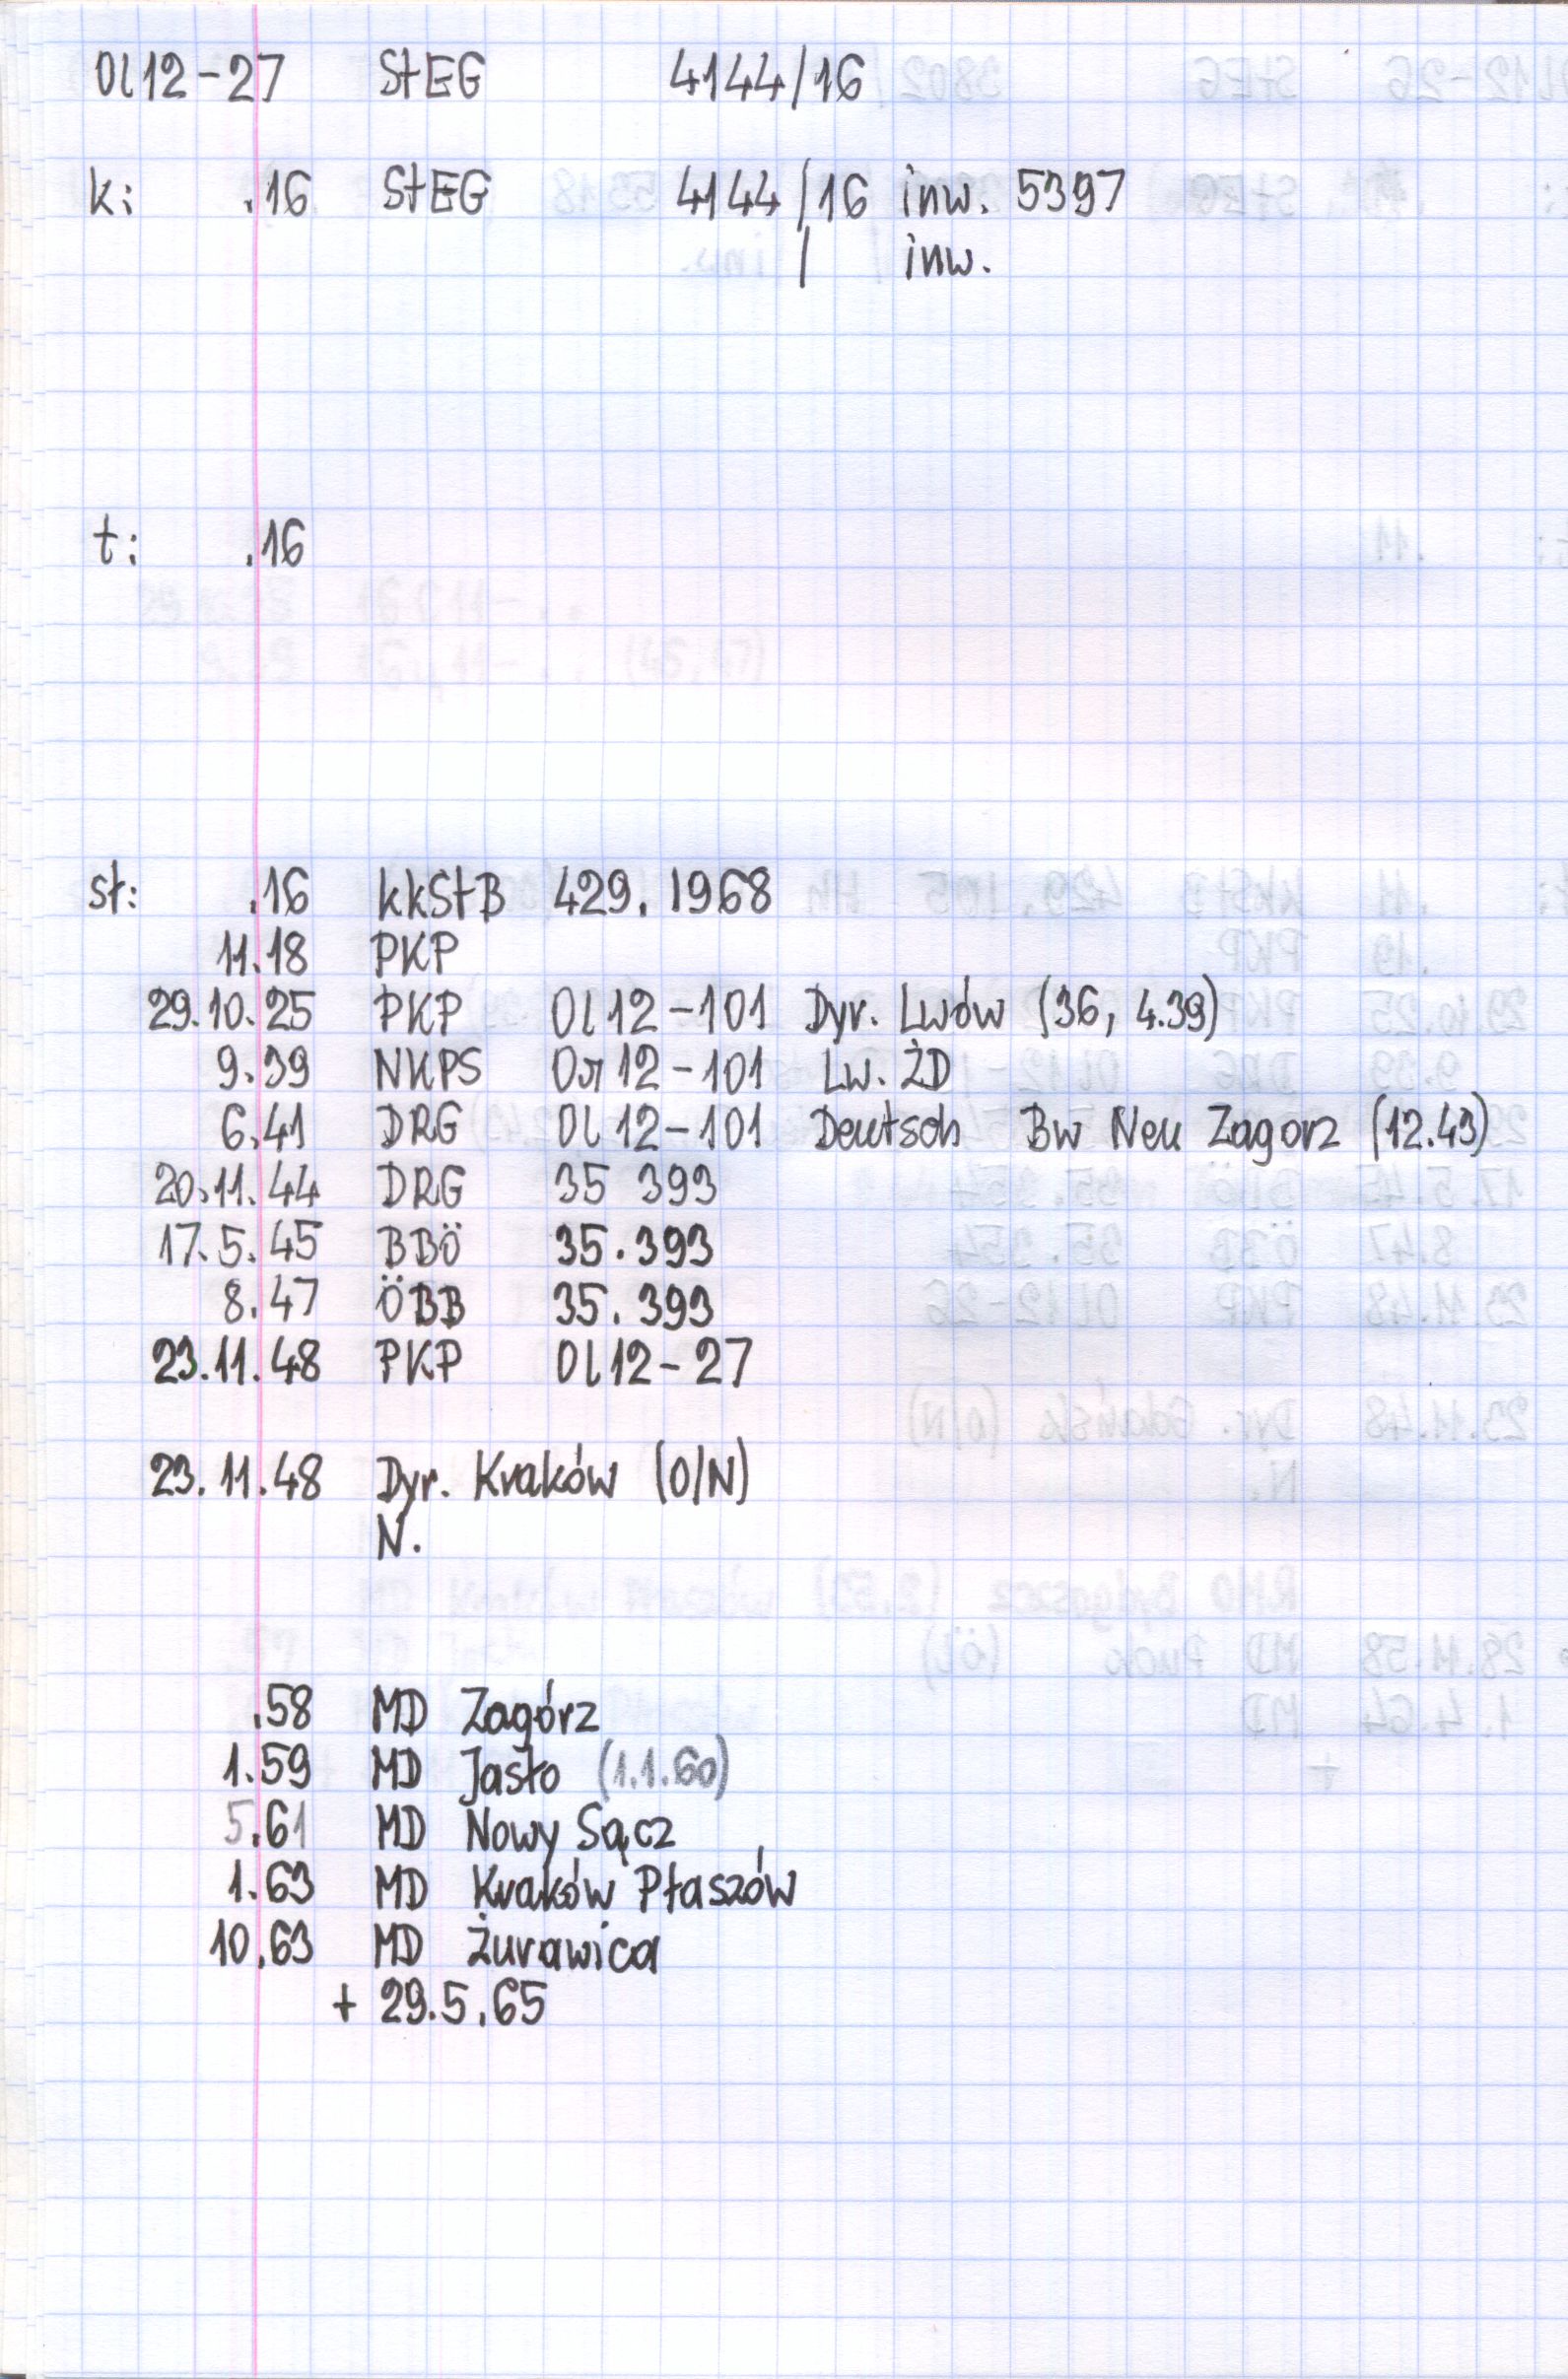 Ol12-27 StEG 4144/16
k: .16 StEG 4144/16 inw. 5397
/ inw.
t: .16
st: .16 kkStB 429.1968
11.18 PKP
29.10.25 PKP Ol12-101 Dyr. Lwów (36, 4.39)
9.39 NKPS Ол12-101 Lw. ŻD
6.41 DRG Ol12-101 Deutsch Bw Neu Zagorz (12.43)
20.11.44 DRG 35 393
17.5.45 BBÖ 35.393
8.47 ÖBB 35.393
23.11.48 PKP Ol12-27
23.11.48 Dyr. Kraków (O/N)
N.
.58 MD Zagórz
1.59 MD Jasło (1.1.60)
5.61 MD Nowy Sącz
1.63 MD Kraków Płaszów
10.63 MD Żurawica
+ 29.5.65